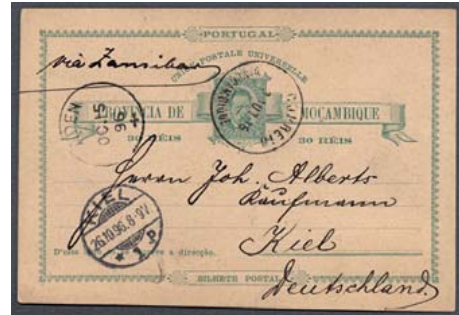 PORTUGAL
UNION POSTALE UNIVERSELLE
via Zansibar
PROVINCIA DE MOÇAMBIQUE
30 RÉIS 30 RÉIS
ADEN
OC 15
96
MOÇAMBIQUE
Herrn Joh. Alberts
Kaufmann
Kiel
Deutschland.
KIEL
26.10.96.8-9V.
* 1 P
a direcção.
BILHETE POSTAL